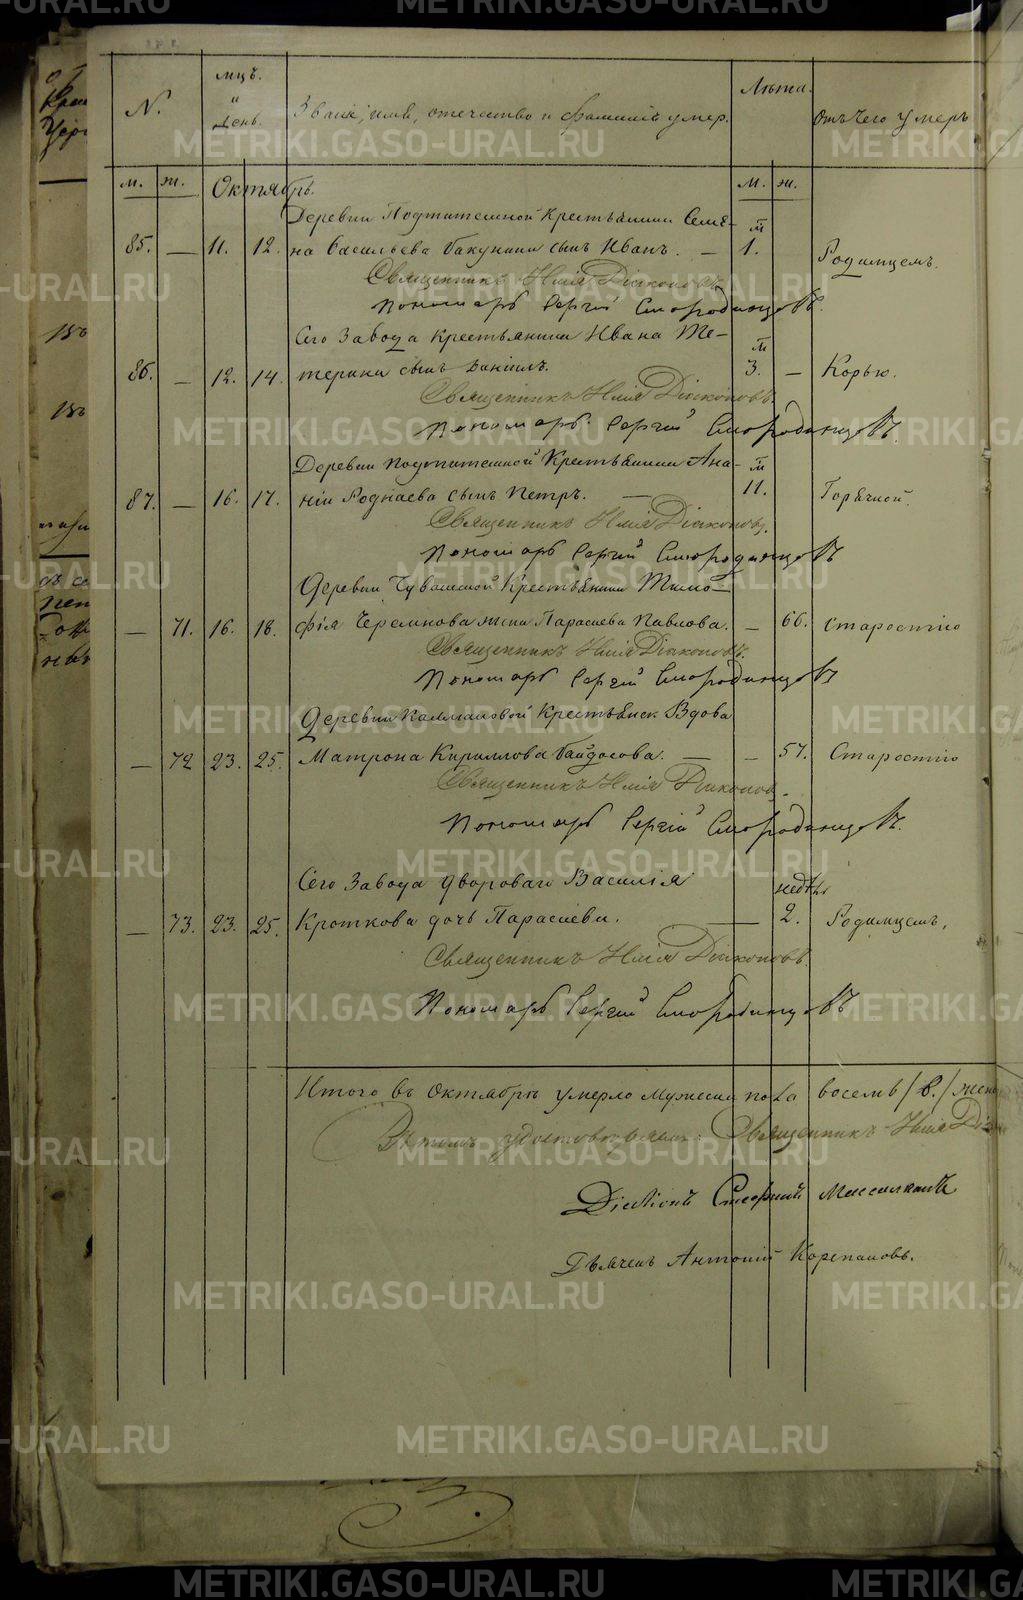 мцъ.
и
день.
Лѣта.
N.
Званіе, имя, отечество и фамилія умер.
Отъ чего умеръ
м. ж. Октябрь. м. ж.
Деревни Крестьянина Семе-
м
85. — 11. 12. на Васильева Бакунина сынъ Иванъ. — 1. Родимцемъ.
Священникъ Илія Діаконовъ.
Пономарь Сергій Смородинцовъ.
Сего Завода Крестьянина Ивана Те-
м
86. — 12. 14. терина сынъ Даніилъ. 3. — Корью.
Священникъ Илія Діаконовъ.
Пономарь Сергій Смородинцовъ.
Деревни Крестьянина Ана-
м
87. — 16. 17. ніи сынъ Петръ. — 11. Горячкой.
Священникъ Илія Діаконовъ.
Пономарь Сергій Смородинцовъ
Деревни Крестьянина Тимо-
— 71. 16. 18. фія жена Параскева Павлова. — 66. Старостію
Священникъ Илія Діаконовъ.
Пономарь Сергій Смородинцовъ
Деревни Крестьянск. Вдова
— 72 23. 25. Матрона Кириллова — — 57. Старостію
Священникъ Илія Діаконов.
Пономарь Сергій Смородинцовъ.
Сего Завода Дворового Василія недѣль
— 73. 23. 25. Кроткова дочь Параскева. — 2. Родимцемъ.
Священникъ Илія Діаконовъ.
Пономарь Сергій Смородинцовъ
Итого въ Октябрѣ умерло Мужеска пола восемь /8./
Въ томъ удостовѣряемъ: Священникъ Илія
Діаконъ
Дьячекъ Антоній Корепановъ.
METRIKI.GASO-URAL.RU